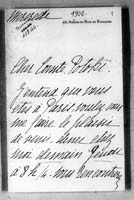 Mercredi
1908.
Cher Comte Potocki.
J'entends que vous
êtes à Paris voulez vous
me faire le plaisir
de venir dîner chez
moi demain Jeudi
à 8 h ¼. Vous rencontrerez